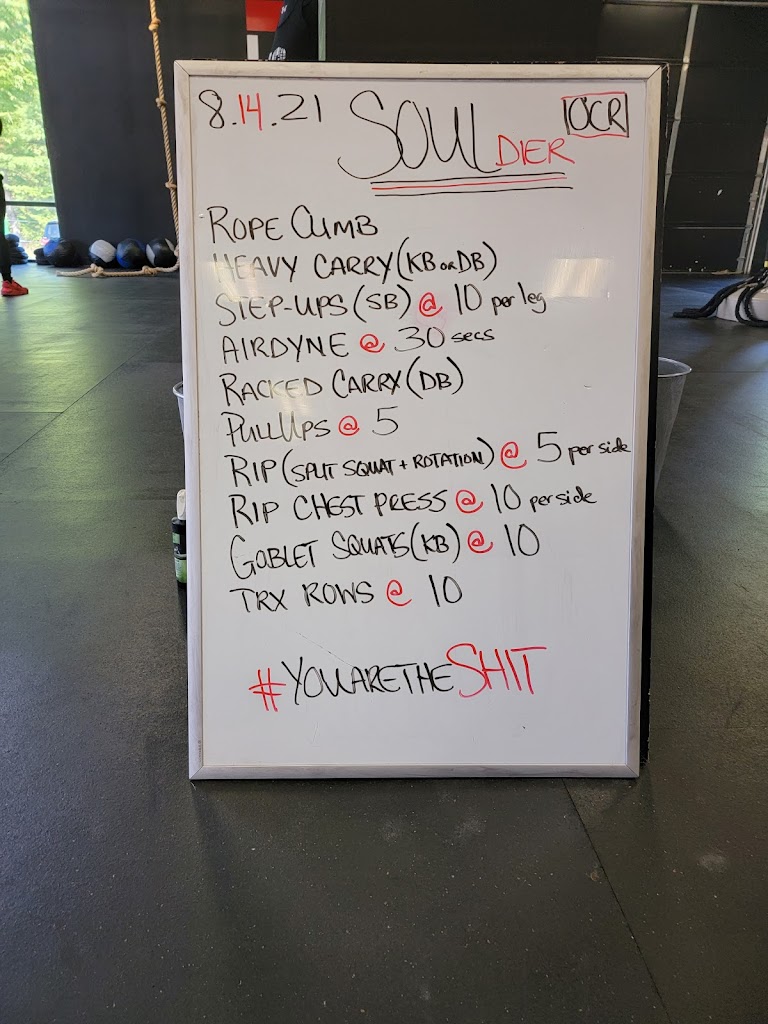 8.14.21 SOULDIER OCR
ROPE CLIMB
HEAVY CARRY (KB OR DB)
STEP-UPS (SB) @ 10 per leg
AIRDYNE @ 30 secs
RACKED CARRY (DB)
PullUps @ 5
RIP (SPLIT SQUAT + ROTATION) @ 5 per side
RIP CHEST PRESS @ 10 per side
GOBLET SQUATS (KB) @ 10
TRX ROWS @ 10
#YOUARETHESHIT